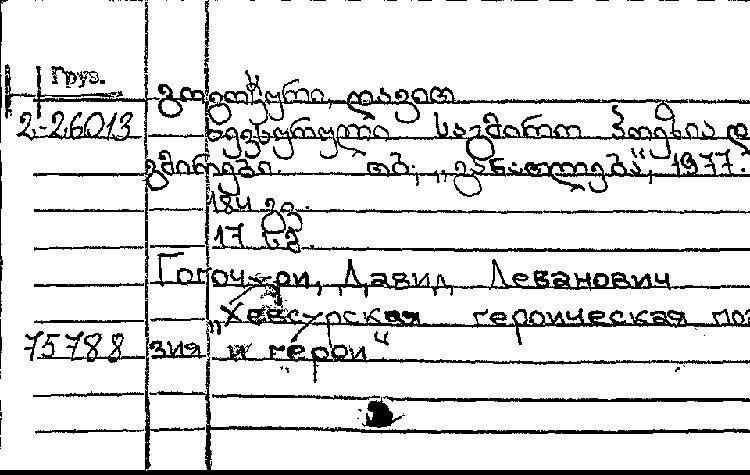 Груз.
გოგოჭური, დავით
2-26013 ხევსურული საგმირო პოეზია და
გმირები. თბ., „განათლება“, 1977.
184 გვ.
17 სმ.
Гогочури, Давид Леванович
„Хевсурская героическая поэ
75788 зия и герои“